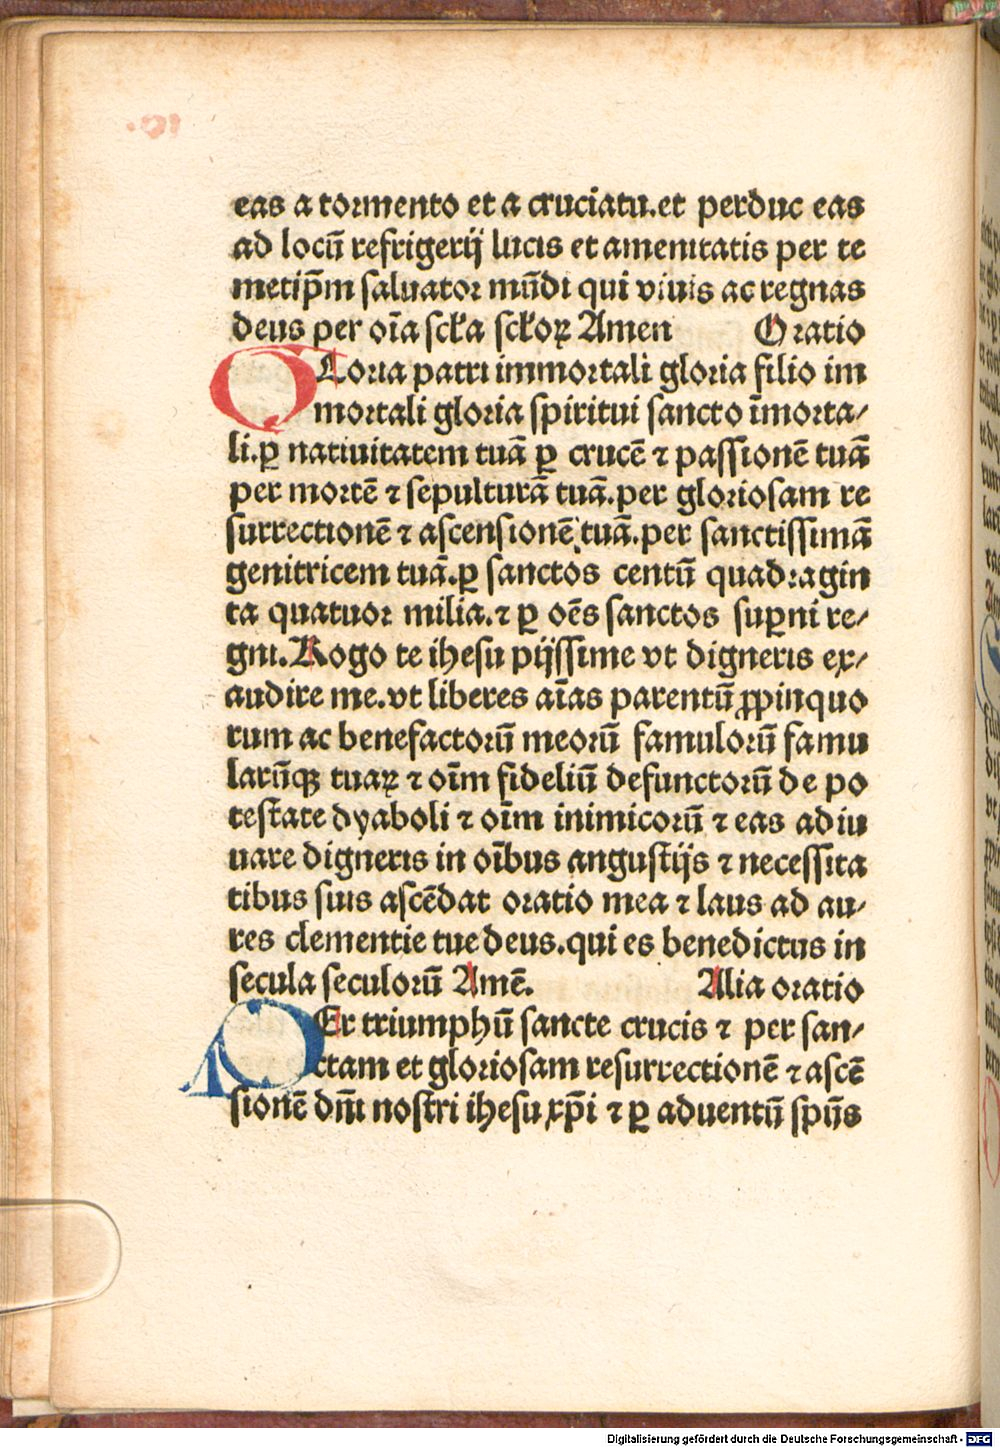 eas a tormento et a cruciatu.et perduc eas
ad locū refrigerij lucis et amenitatis per te
metip̄m saluator mūdi qui viuis ac regnas
deus per oīa scl̄a scl̄oꝝ Amen Oratio
GLoria patri immortali gloria filio im
mortali gloria spiritui sancto īmorta/
li.ꝑ natiuitatem tuā ꝑ crucē ⁊ passionē tuā
per mortē ⁊ sepulturā tuā.per gloriosam re
surrectionē ⁊ ascensionē tuā.per sanctissimā
genitricem tuā.ꝑ sanctos centū quadragin
ta quatuor milia.⁊ ꝑ oēs sanctos suꝑni re/
gni.Rogo te ihesu pijssime vt digneris ex/
audire me.vt liberes aīas parentū ꝓpinquo
rum ac benefactorū meorū famulorū famu
larūqꝫ tuaꝝ ⁊ oīm fideliū defunctorū de po
testate dyaboli ⁊ oīm inimicorū ⁊ eas adiu
uare digneris in oībus angustijs ⁊ necessita
tibus suis ascēdat oratio mea ⁊ laus ad au/
res clementie tue deus.qui es benedictus in
secula seculorū Amē. Alia oratio
PEr triumphū sancte crucis ⁊ per san/
ctam et gloriosam resurrectionē ⁊ ascē
sionē dn̄i nostri ihesu xp̄i ⁊ ꝑ aduentū sp̄us
Digitalisierung gefördert durch die Deutsche Forschungsgemeinschaft - DFG